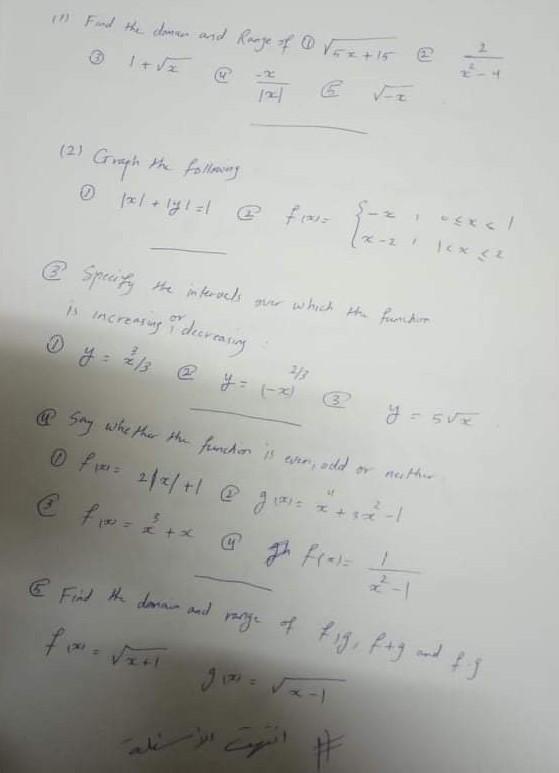 (1) Find the domain and Range of ① √5x+15 ② 2/x²-4
③ 1+√x ④ -x/|x| ⑤ √-x
(2) Graph the following
① |x|+|y|=1 ② f(x)= { -x , 0≤x<1
x-2 , 1<x≤2
③ Specify the intervals over which the function
is increasing or decreasing :
① y = x³/3 ② y = (-x)^2/3 ③ y = 5√x
④ Say whether the function is even, odd or neither
① f(x)= 2|x|+1 ② g(x)= x⁴+3x²-1
③ f(x) = x³+x ④ f(x)= 1/x²-1
⑤ Find the domain and range of f,g, f+g and f.g
f(x) = √x+1 g(x) = √x-1
# انتهت الأسئلة